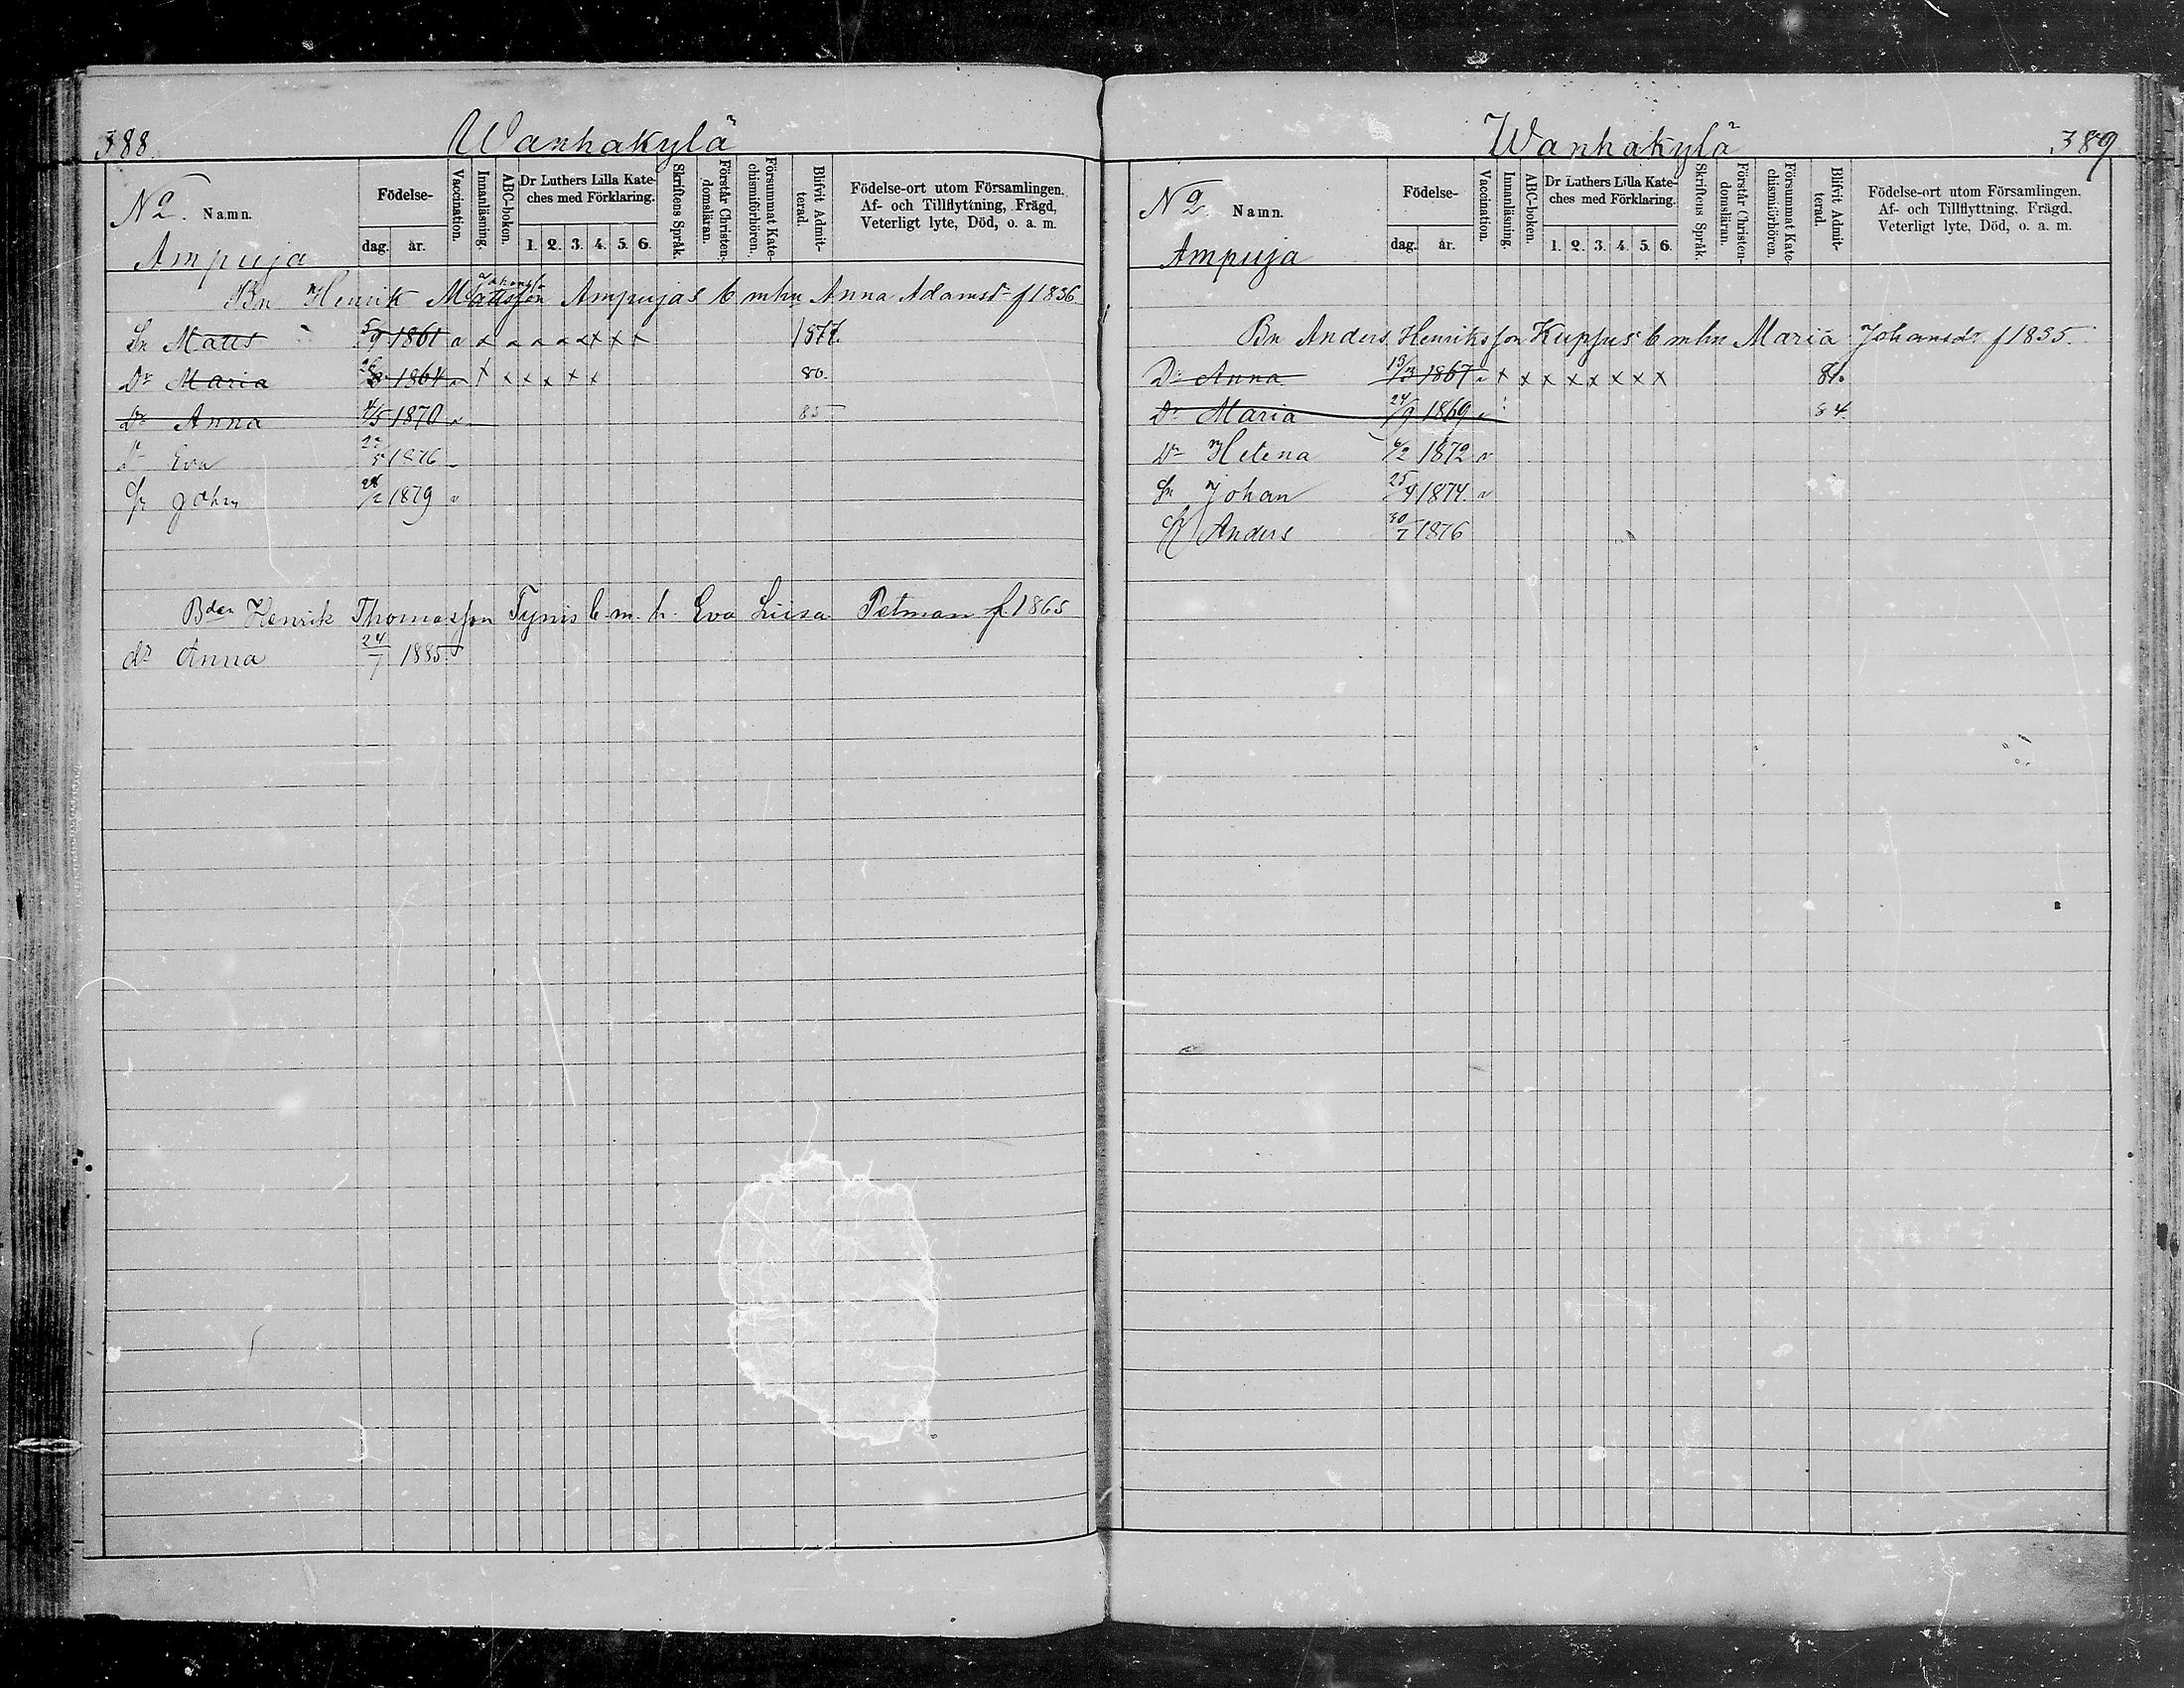 388. Wanhakylä
No 2. Namn. Födelse- Vaccination. Innanläsning. ABC-boken. Dr Luthers Lilla Kate-ches med Förklaring. Skriftens Språk. Förstår Christen-domsläran. Försummat Kate-chismiförhören. Blifvit Admit-terad. Födelse-ort utom Församlingen. Af- och Tillflyttning, Frägd, Veterligt lyte, Död, o. a. m.
dag. år. 1. 2. 3. 4. 5. 6.
Ampuja
Bn Henrik Mattsson Ampujas b mhu Anna Adamsdr f 1836
Sn Matts 5/9 1861 v x x x x x x x x 1877.
Dr Maria 1864 v x x x x x x 80.
Dr Anna 4/5 1870 v 85
Dr Eva 22/5 1876
Sn Johan 28/2 1879 v
Bden Henrik Thomasson Tynis b. m. h. Eva Liisa Petman f. 1865
dr Anna 24/7 1885. v
Wanhakylä 389
No 2. Namn. Födelse- Vaccination. Innanläsning. ABC-boken. Dr Luthers Lilla Kate-ches med Förklaring. Skriftens Språk. Förstår Christen-domsläran. Försummat Kate-chismiförhören. Blifvit Admit-terad. Födelse-ort utom Församlingen. Af- och Tillflyttning, Frägd, Veterligt lyte, Död, o. a. m.
dag. år. 1. 2. 3. 4. 5. 6.
Ampuja
Bn Anders Henriksson Kuppus b mhu Maria Johansdr f 1835.
Dr Anna 13/3 1867 v x x x x x x x x 81.
Dr Maria 24/9 1869 v 84.
Dr Helena 6/2 1872 v
Sn Johan 25/9 1874. v
Sn Anders 30/7 1876